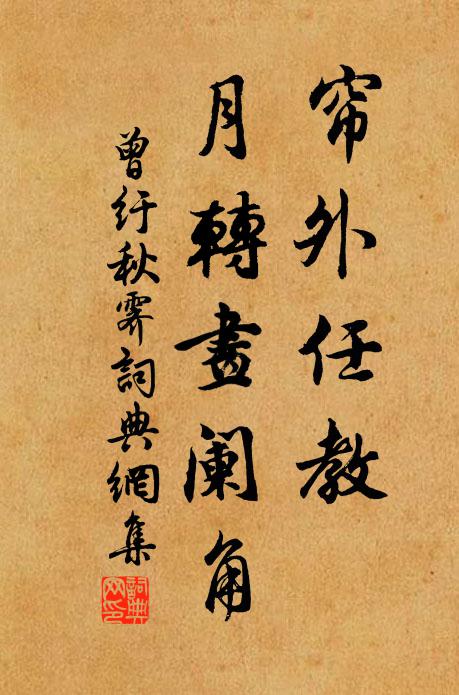 帘外任教
月轉畫阑角
曾纡秋霁詞典網集
詞典网印